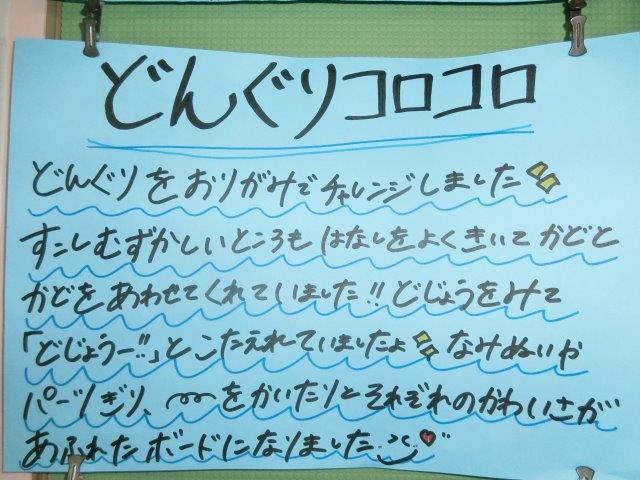 どんぐりコロコロ
どんぐりをおりがみでチャレンジしました
すこしむずかしいところもはなしをよくきいてかどと
かどをあわせてくれていました!!どじょうをみて
「どじょうー!!」とこたえれていましたよ なみぬいや
パーツぎり、をかいたりとそれぞれのかわいさが
あふれたボードになりました